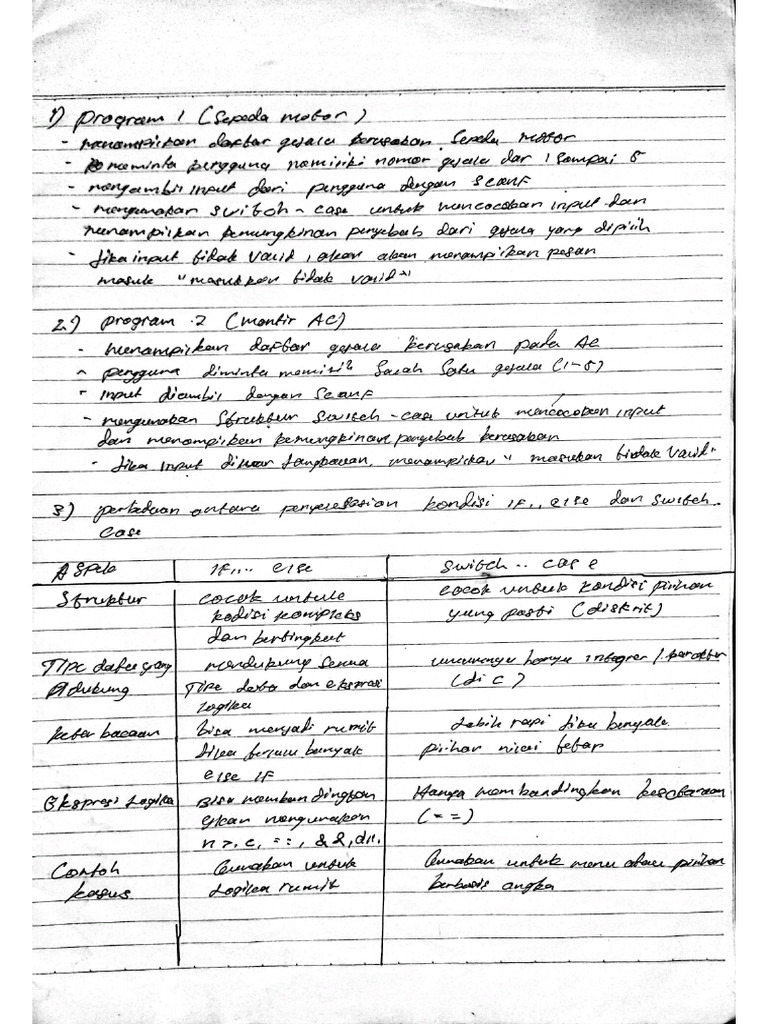 1) Program 1 (Sepeda motor)
- menampilkan daftar gejala kerusakan sepeda motor
- meminta pengguna memilih nomor gejala dari 1 sampai 5
- mengambil input dari pengguna dengan scanf
- mengunakan switch - case untuk mencocokan input dan
menampilkan kemungkinan penyebab dari gejala yang dipilih
- Jika input tidak valid, akan menampilkan pesan
masuk "masukkan tidak valid"
2.) program 2 (montir AC)
- menampilkan daftar gejala kerusakan pada AC
- pengguna diminta memilih salah satu gejala (1-5)
- input diambil dengan scanf
- mengunakan struktur switch - case untuk mencocokan input
dan menampilkan kemungkinan penyebab kerusakan
- Jika input diluar jangkauan, menampilkan "masukan tidak valid"
3) perbedaan antara penyelesaian kondisi if.. else dan switch..
case
Aspek if.... else switch .. case
Struktur cocok untuk cocok untuk kondisi pilihan
kodisi kompleks yang pasti (diskrit)
dan bertingkat
Tipe data yang mendukung semua umumnya hanya integer / karakter
didukung Tipe data dan ekspresi (di C)
logika
keterbacaan bisa menjadi rumit Lebih rapi jika banyak
jika terlalu banyak pilihan nilai tetap
else if
Ekspresi Logika Bisa membandingkan Hanya membandingkan kesetaraan
mengunakan (==)
==, &&, dll.
Contoh Gunakan untuk Gunakan untuk menu atau pilihan
kasus Logika rumit berbasis angka